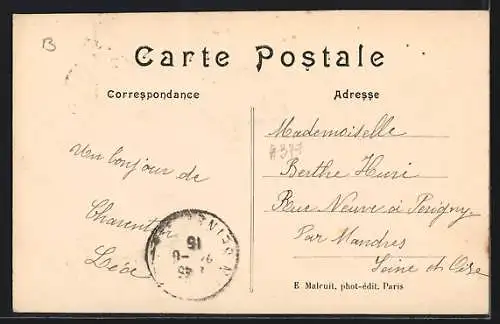 B
Carte Postale
Correspondance
Adresse
Mademoiselle
#377
Berthe Huré
Rue Neuve à Périgny
Par Mandres
Seine et Oise
Un bonjour de
Charenton
SEINE
15
E Malcuit, phot-édit, Paris